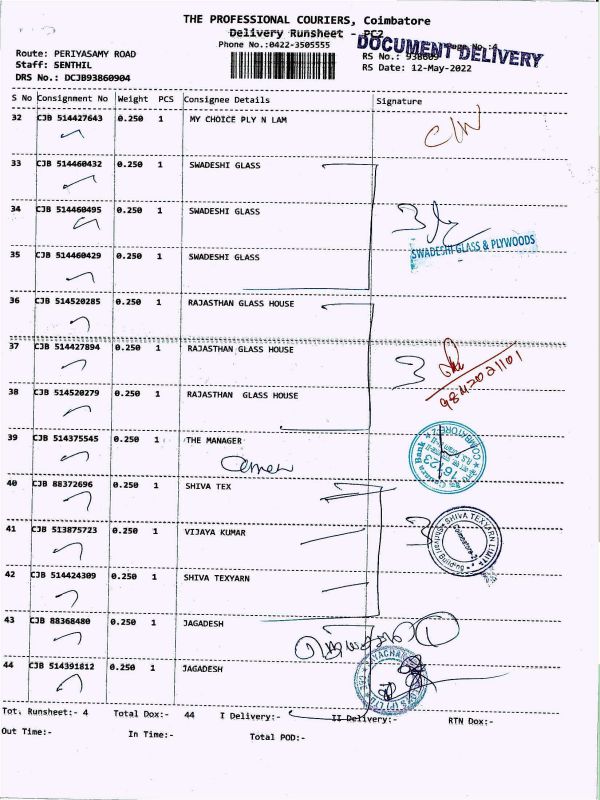 THE PROFESSIONAL COURIERS, Coimbatore
Delivery Runsheet - PC2
Phone No.:0422-3505555
DOCUMENT DELIVERY
Page No.:4
Route: PERIYASAMY ROAD
Staff: SENTHIL
DRS No.: DCJB93860904
RS No.: 938609
RS Date: 12-May-2022
S No Consignment No Weight PCS Consignee Details Signature
32 CJB 514427643 0.250 1 MY CHOICE PLY N LAM
33 CJB 514460432 0.250 1 SWADESHI GLASS
34 CJB 514460495 0.250 1 SWADESHI GLASS
3
SWADESHI GLASS & PLYWOODS
35 CJB 514460429 0.250 1 SWADESHI GLASS
36 CJB 514520285 0.250 1 RAJASTHAN GLASS HOUSE
37 CJB 514427894 0.250 1 RAJASTHAN GLASS HOUSE
3
38 CJB 514520279 0.250 1 RAJASTHAN GLASS HOUSE
39 CJB 514375545 0.250 1 THE MANAGER
Canara Bank
COIMBATORE
40 CJB 88372696 0.250 1 SHIVA TEX
41 CJB 513875723 0.250 1 VIJAYA KUMAR
3
SHIVA TEXYARN LIMITED
42 CJB 514424309 0.250 1 SHIVA TEXYARN
43 CJB 88368480 0.250 1 JAGADESH
44 CJB 514391812 0.250 1 JAGADESH
Tot. Runsheet:- 4 Total Dox:- 44 I Delivery:- II Delivery:- RTN Dox:-
Out Time:- In Time:- Total POD:-